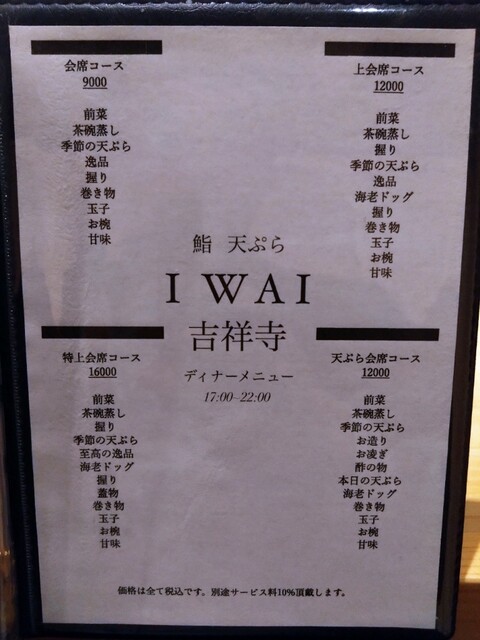 会席コース
9000
前菜
茶碗蒸し
季節の天ぷら
逸品
握り
巻き物
玉子
お椀
甘味
上会席コース
12000
前菜
茶碗蒸し
握り
季節の天ぷら
逸品
海老ドッグ
握り
巻き物
玉子
お椀
甘味
鮨 天ぷら
I WAI
吉祥寺
ディナーメニュー
17:00~22:00
特上会席コース
16000
前菜
茶碗蒸し
握り
季節の天ぷら
至高の逸品
海老ドッグ
握り
蓋物
巻き物
玉子
お椀
甘味
天ぷら会席コース
12000
前菜
茶碗蒸し
季節の天ぷら
お造り
お凌ぎ
酢の物
本日の天ぷら
海老ドッグ
巻き物
玉子
お椀
甘味
価格は全て税込です。別途サービス料10%頂戴します。